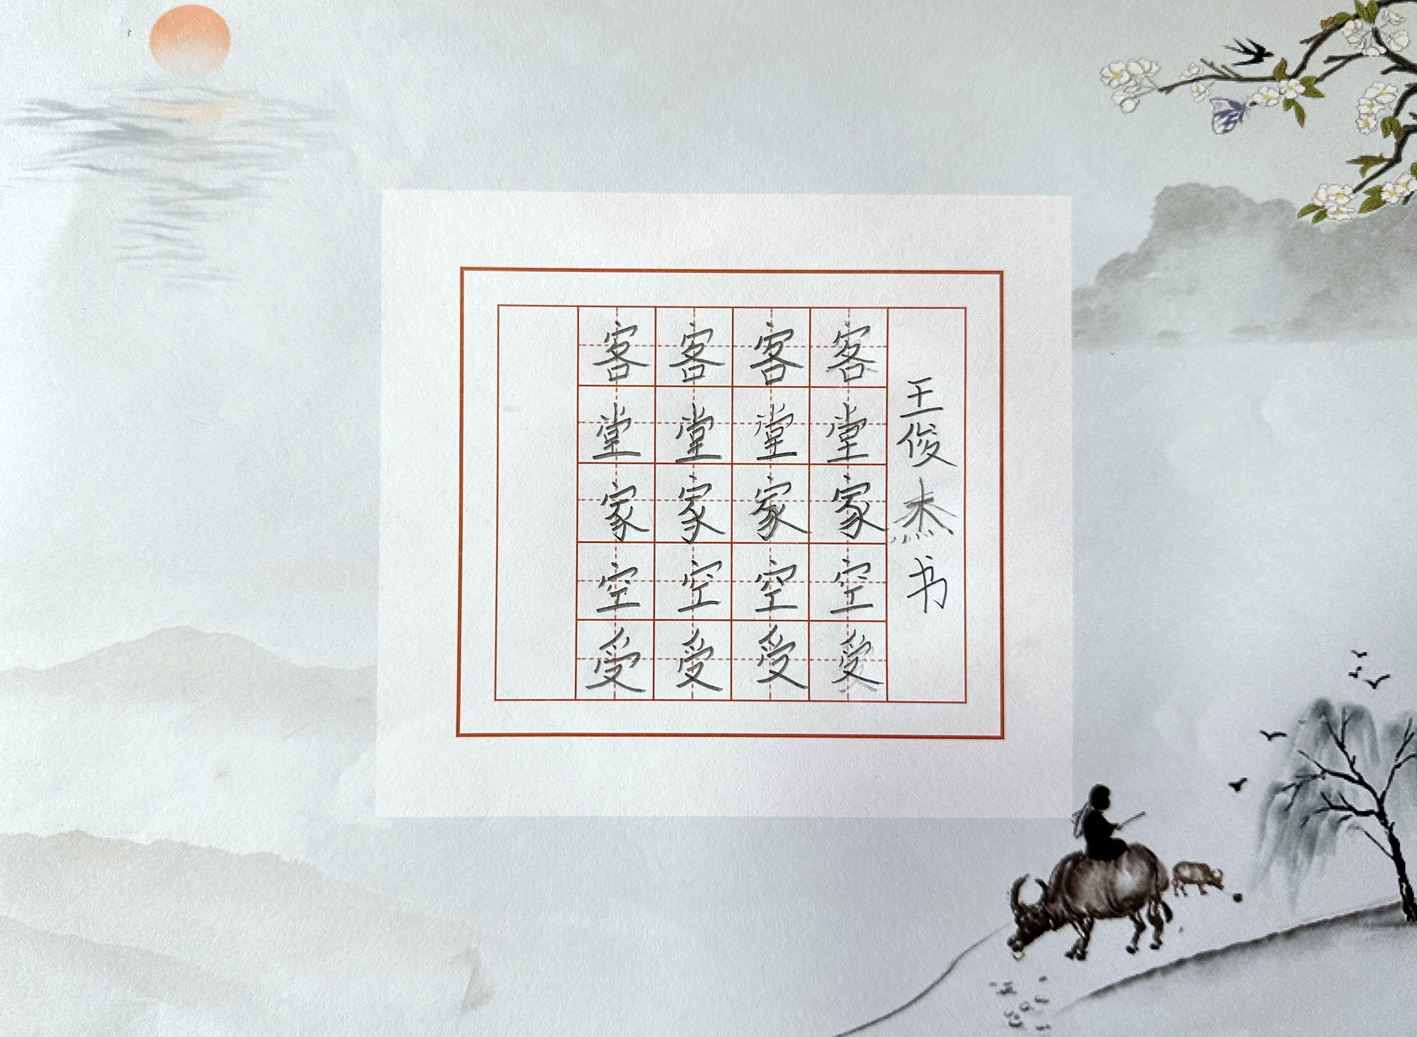 王俊杰书
客客客客
堂堂堂堂
家家家家
空空空空
受受受受